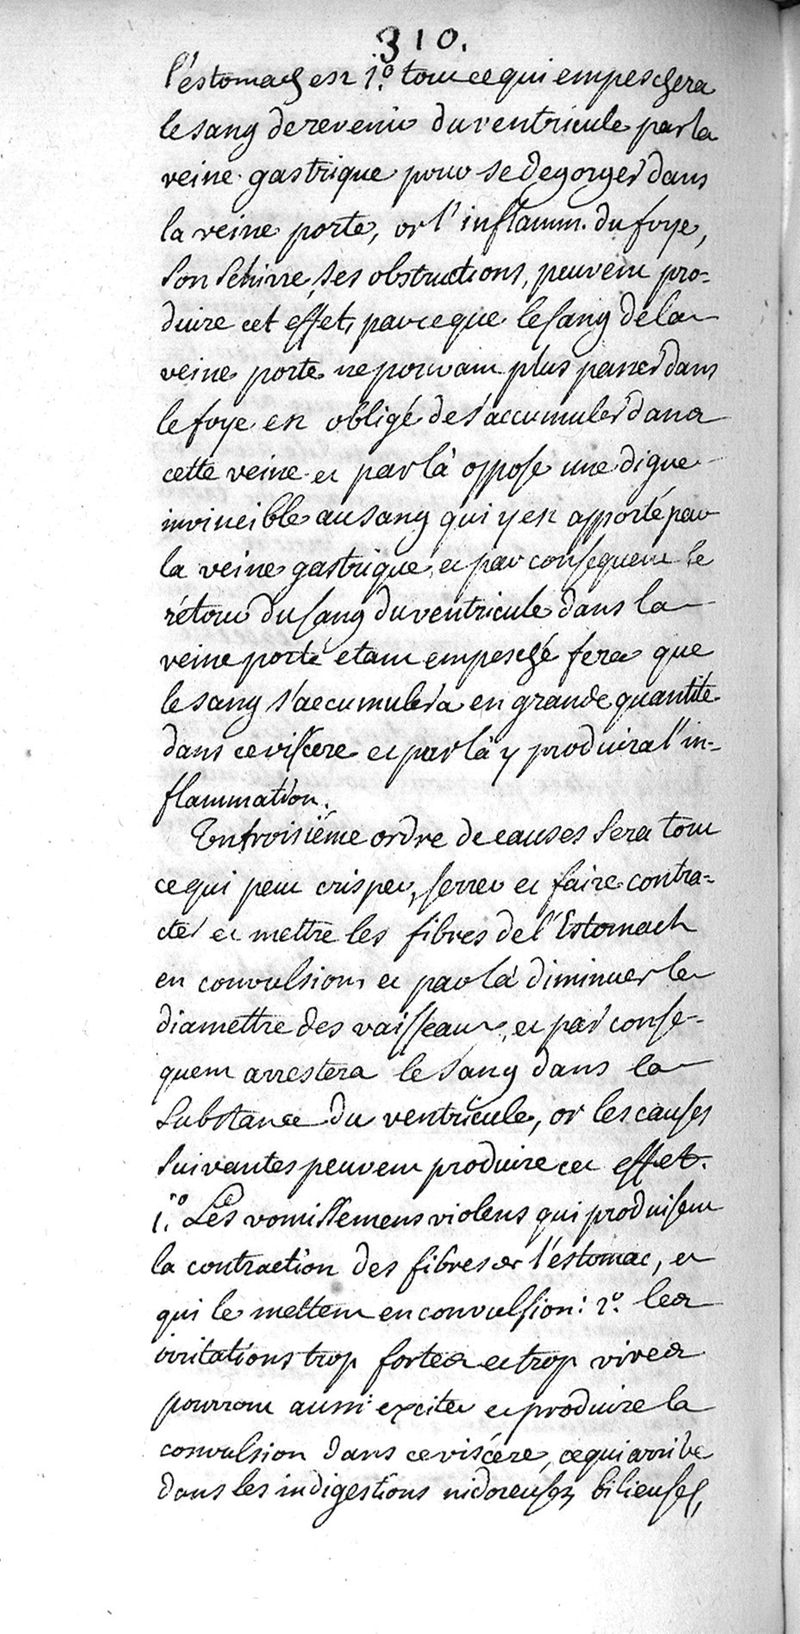 310.
l'éstomach est 1.° tout ce qui empeschera
le sang de revenir du ventricule par la
veine gastrique pour se degorger dans
la veine porte, or l'inflamm. du foye,
son schirre, ses obstructions, peuvent pro=
duire cet effet, parce que le sang de la
veine porte ne pouvant plus passer dans
le foye est obligé de s'accumuler dans
cette veine et par là oppose une digue
invincible au sang qui y est apporté par
la veine gastrique, et par consequent le
rétour du sang du ventricule dans la
veine porte etant empesché fera que
le sang s'accumulera en grande quantité
dans ce viscere et par là y produira l'in=
flammation.
Un troisiéme ordre de causes sera tout
ce qui peut crisper, serrer et faire contra=
cter et mettre les fibres de l'Estomach
en convulsion, et par là diminuer le
diamettre des vaisseaux, et par conse=
quent arrestera le sang dans la
substance du ventricule, or les causes
suivantes peuvent produire cet effet.
1.° Les vomissemens violens qui produisent
la contraction des fibres de l'éstomac, et
qui le mettent en convulsion: 2.° les
irritations trop fortes et trop vives
pourront aussi exciter et produire la
convulsion dans ce viscere, ce qui arrive
dans les indigestions nidoreuses, bilieuses,